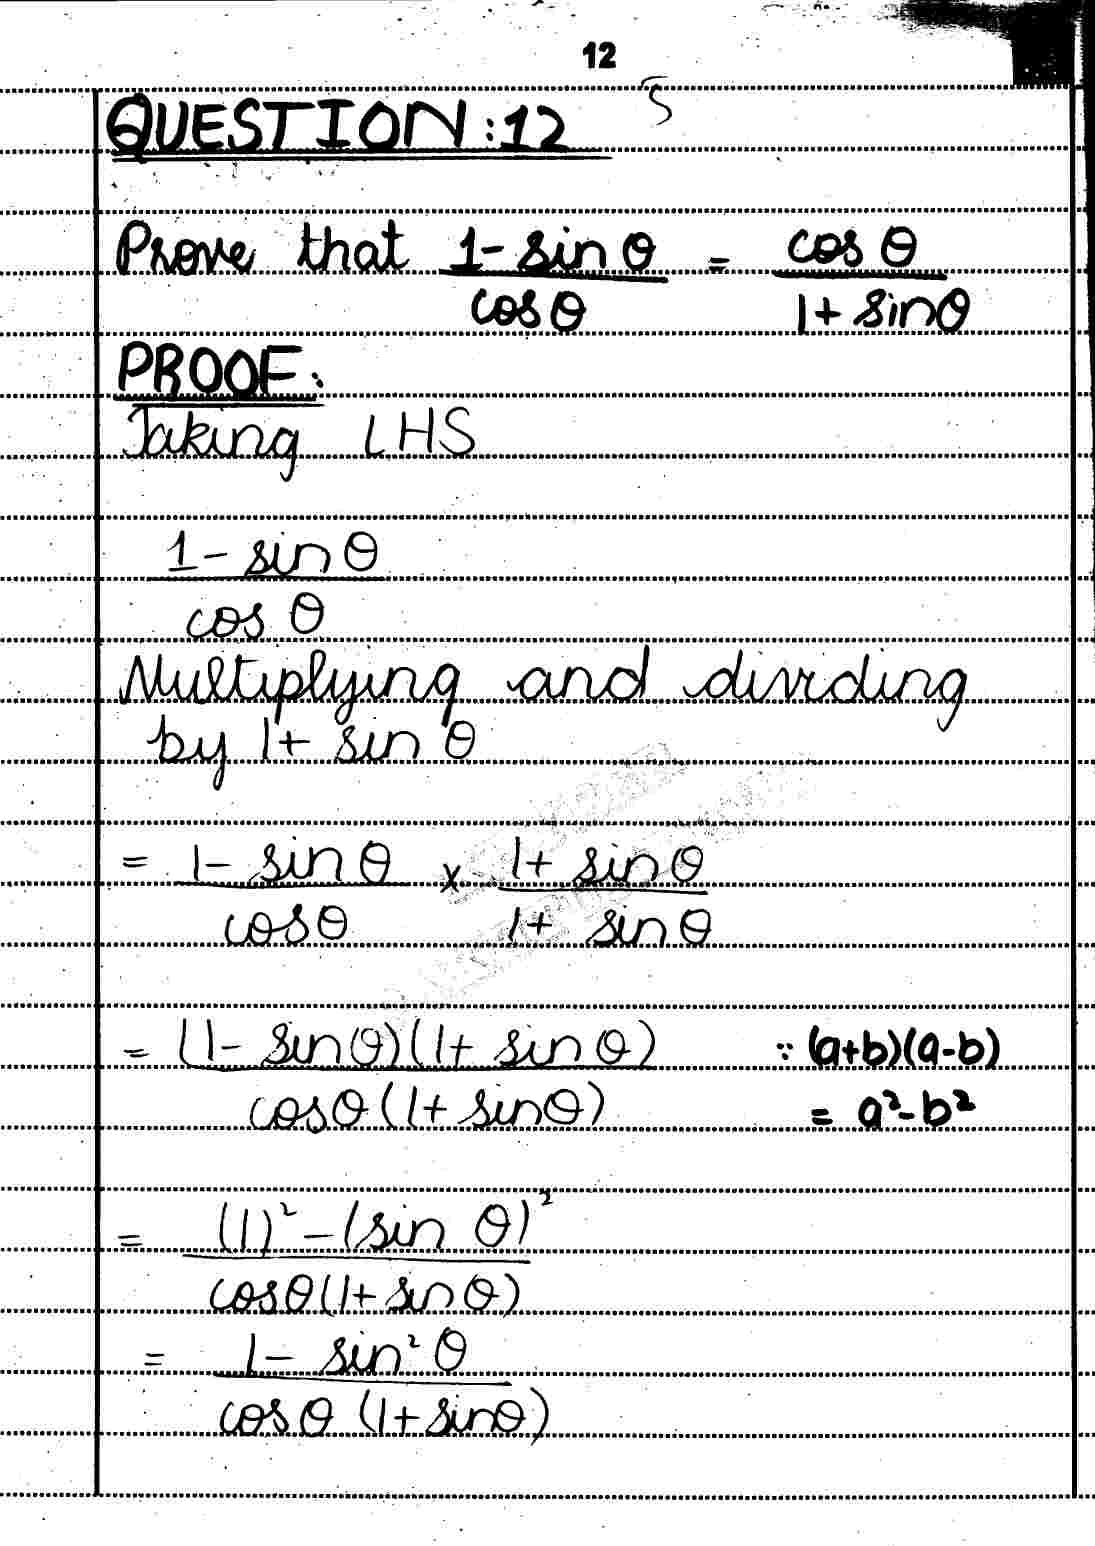 12
5
QUESTION:12
Prove that (1 - sin θ)/(cos θ) = (cos θ)/(1 + sin θ)
PROOF:
Taking LHS
(1 - sin θ)/(cos θ)
Multiplying and dividing
by 1 + sin θ
= (1 - sin θ)/(cos θ) × (1 + sin θ)/(1 + sin θ)
= ((1 - sin θ)(1 + sin θ))/(cos θ (1 + sin θ)) ∵ (a+b)(a-b)
= a²-b²
= ((1)² - (sin θ)²)/(cos θ (1 + sin θ))
= (1 - sin² θ)/(cos θ (1 + sin θ))